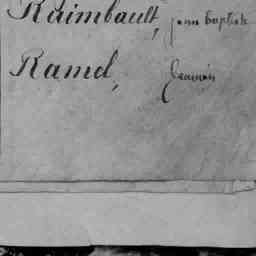 Raimbault, jean baptiste
Ramel, Germain